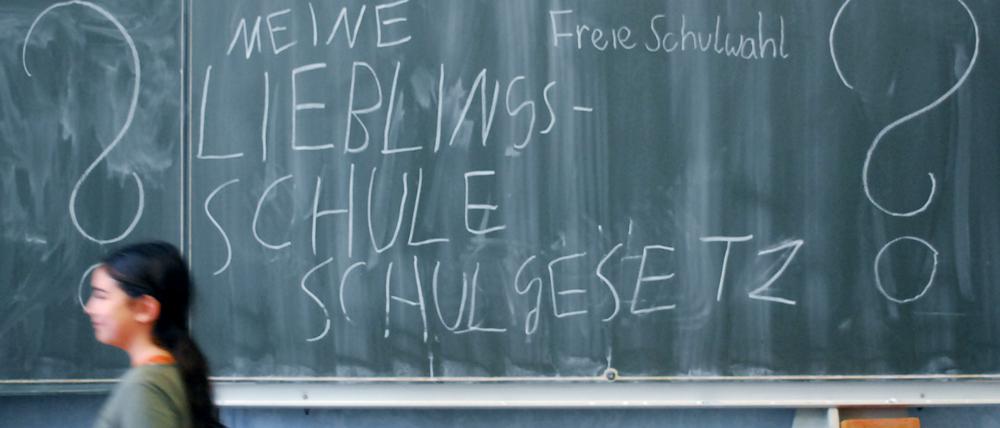 MEINE
Freie Schulwahl
LIEBLINGS-
SCHULE
SCHULGESETZ
? ?